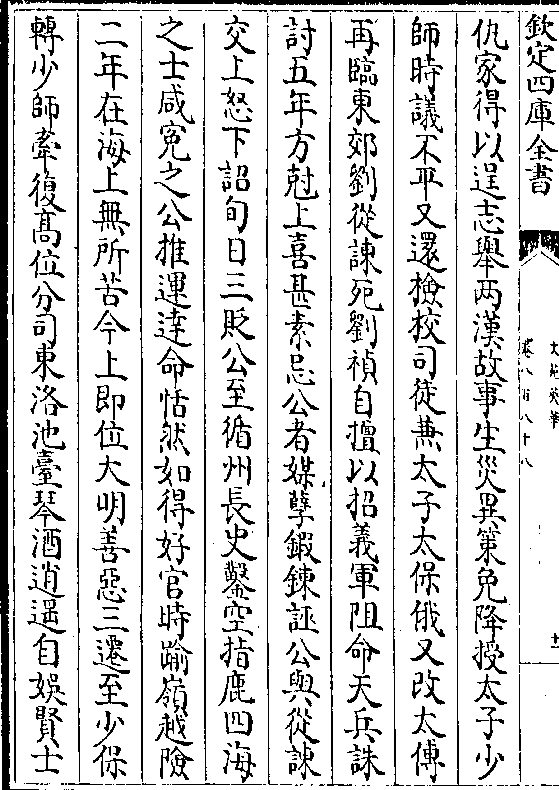 欽定四庫全書
文苑英華
卷八百八十八
十
仇家得以逞志舉两漢故事生災異策免降授太子少
師時議不平又還檢校司徒兼太子太保俄又改太傅
再臨東郊劉從諫死劉禎自擅以招義軍阻命天兵誅
討五年方尅上喜甚素忌公者媒孽鍜鍊誣公與從諫
交上怒下詔旬日三貶公至循州長史鑿空指鹿四海
之士咸寃之公推運達命恬然如得好官時踰嶺越險
二年在海上無所苦今上即位大明善惡三遷至少保
轉少師牽復髙位分司東洛池臺琴酒逍遥自娯賢士